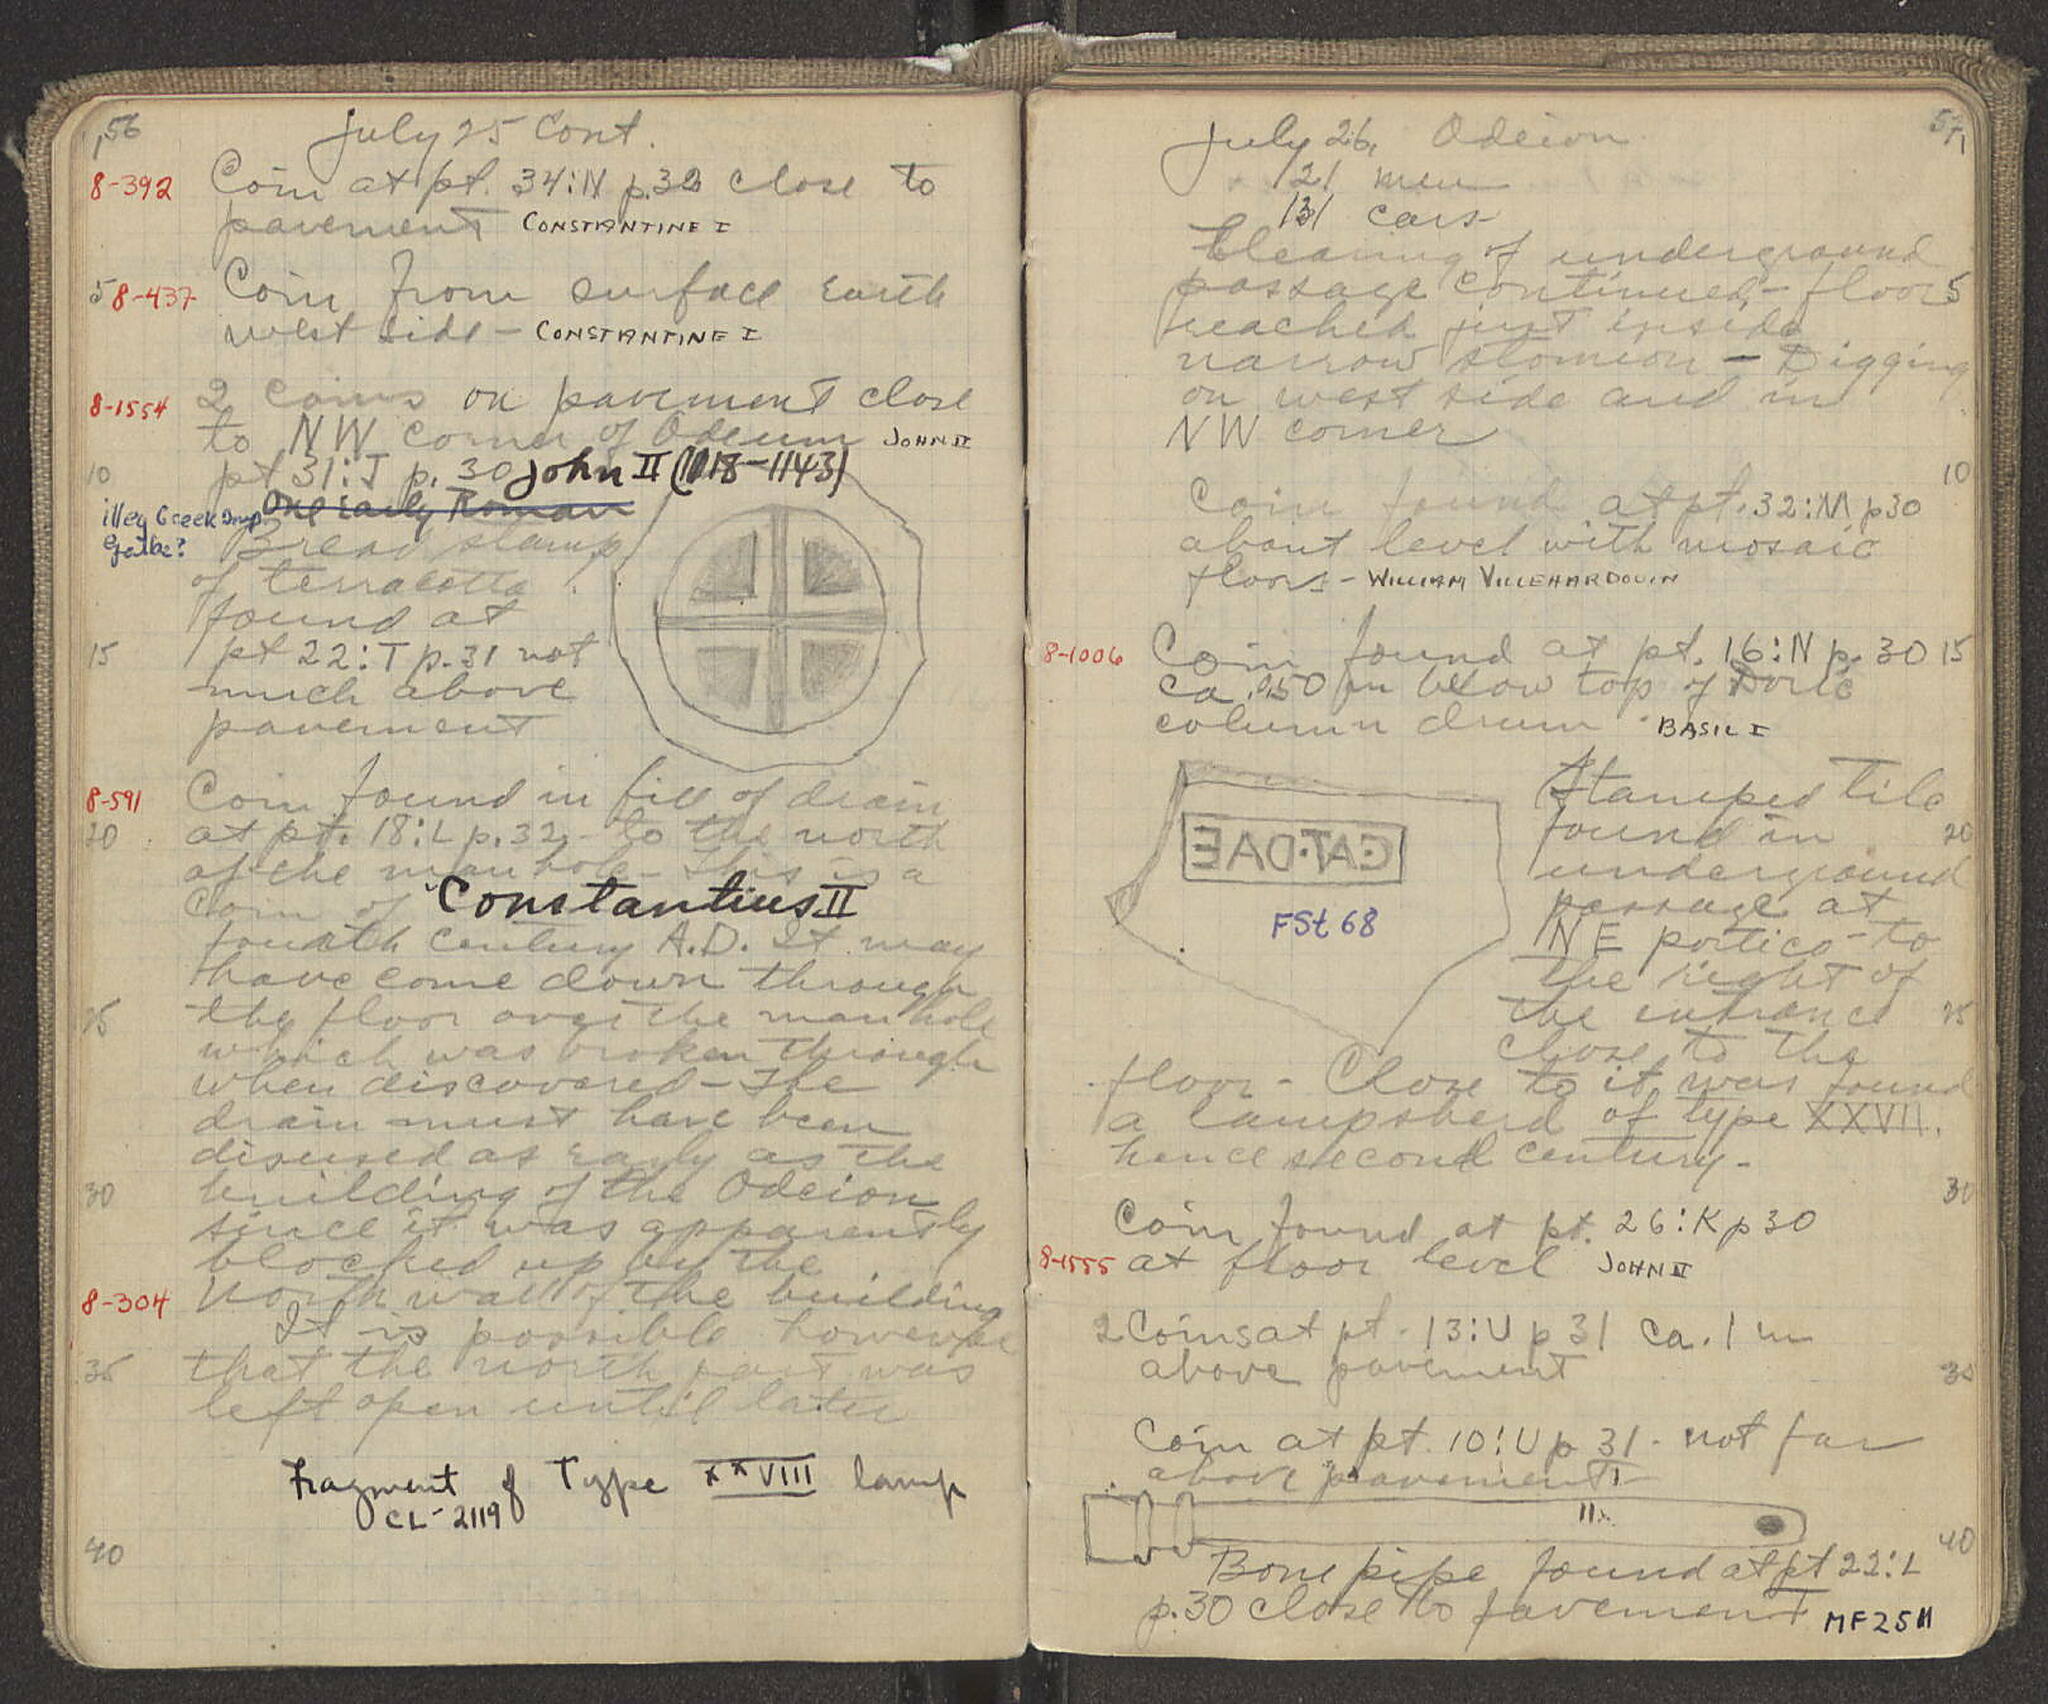 56
July 25 Cont.
8-392 Coin at pt. 34:N p.32 close to
pavement CONSTANTINE I
5 8-437 Coin from surface earth
west side - CONSTANTINE I
8-1554 2 coins on pavement close
to NW corner of Odeum JOHN II
10 pt 31:J p. 30 John II (1118-1143)
illeg Greek Imp. One Early Roman
Galba?
Bread stamp
of terracotta
found at
15 pt 22:T p.31 not
much above
pavement
8-591 Coin found in fill of drain
20 at pt. 18:L p.32 - to the north
of the manhole - This is a
Coin of Constantius II
fourth century A.D. It may
have come down through
25 the floor over the manhole
which was broken through
when discovered - The
drain must have been
disused as early as the
30 building of the Odeion
since it was apparently
blocked up by the
8-304 North wall of the building
It is possible however
35 that the north part was
left open until later
Fragment of Type XXVIII lamp
CL-2119
40
57
July 26, Odeion
21 men
131 cars
Clearing of underground
passage continued - floor 5
reached just inside
narrow stomion - Digging
on west side and in
NW corner
10
Coin found at pt. 32:M p30
about level with mosaic
floor - WILLIAM VILLEHARDOUIN
8-1006 Coin found at pt. 16:N p. 30 15
ca. 0.50 m below top of Doric
column drum BASIL I
Stamped tile
found in 20
underground
passage at
NE portico - to
the right of
the entrance 25
close to the
CAT·DAE
FSt 68
floor - Close to it was found
a lampsherd of type XXVII.
hence second century -
30
Coin found at pt. 26:K p30
8-1555 at floor level JOHN II
2 Coins at pt. 13:U p 31 ca. 1 m
above pavement 35
Coin at pt. 10:U p 31 - not far
above pavement -
40
Bone pipe found at pt 22:L
p.30 close to pavement MF 2511